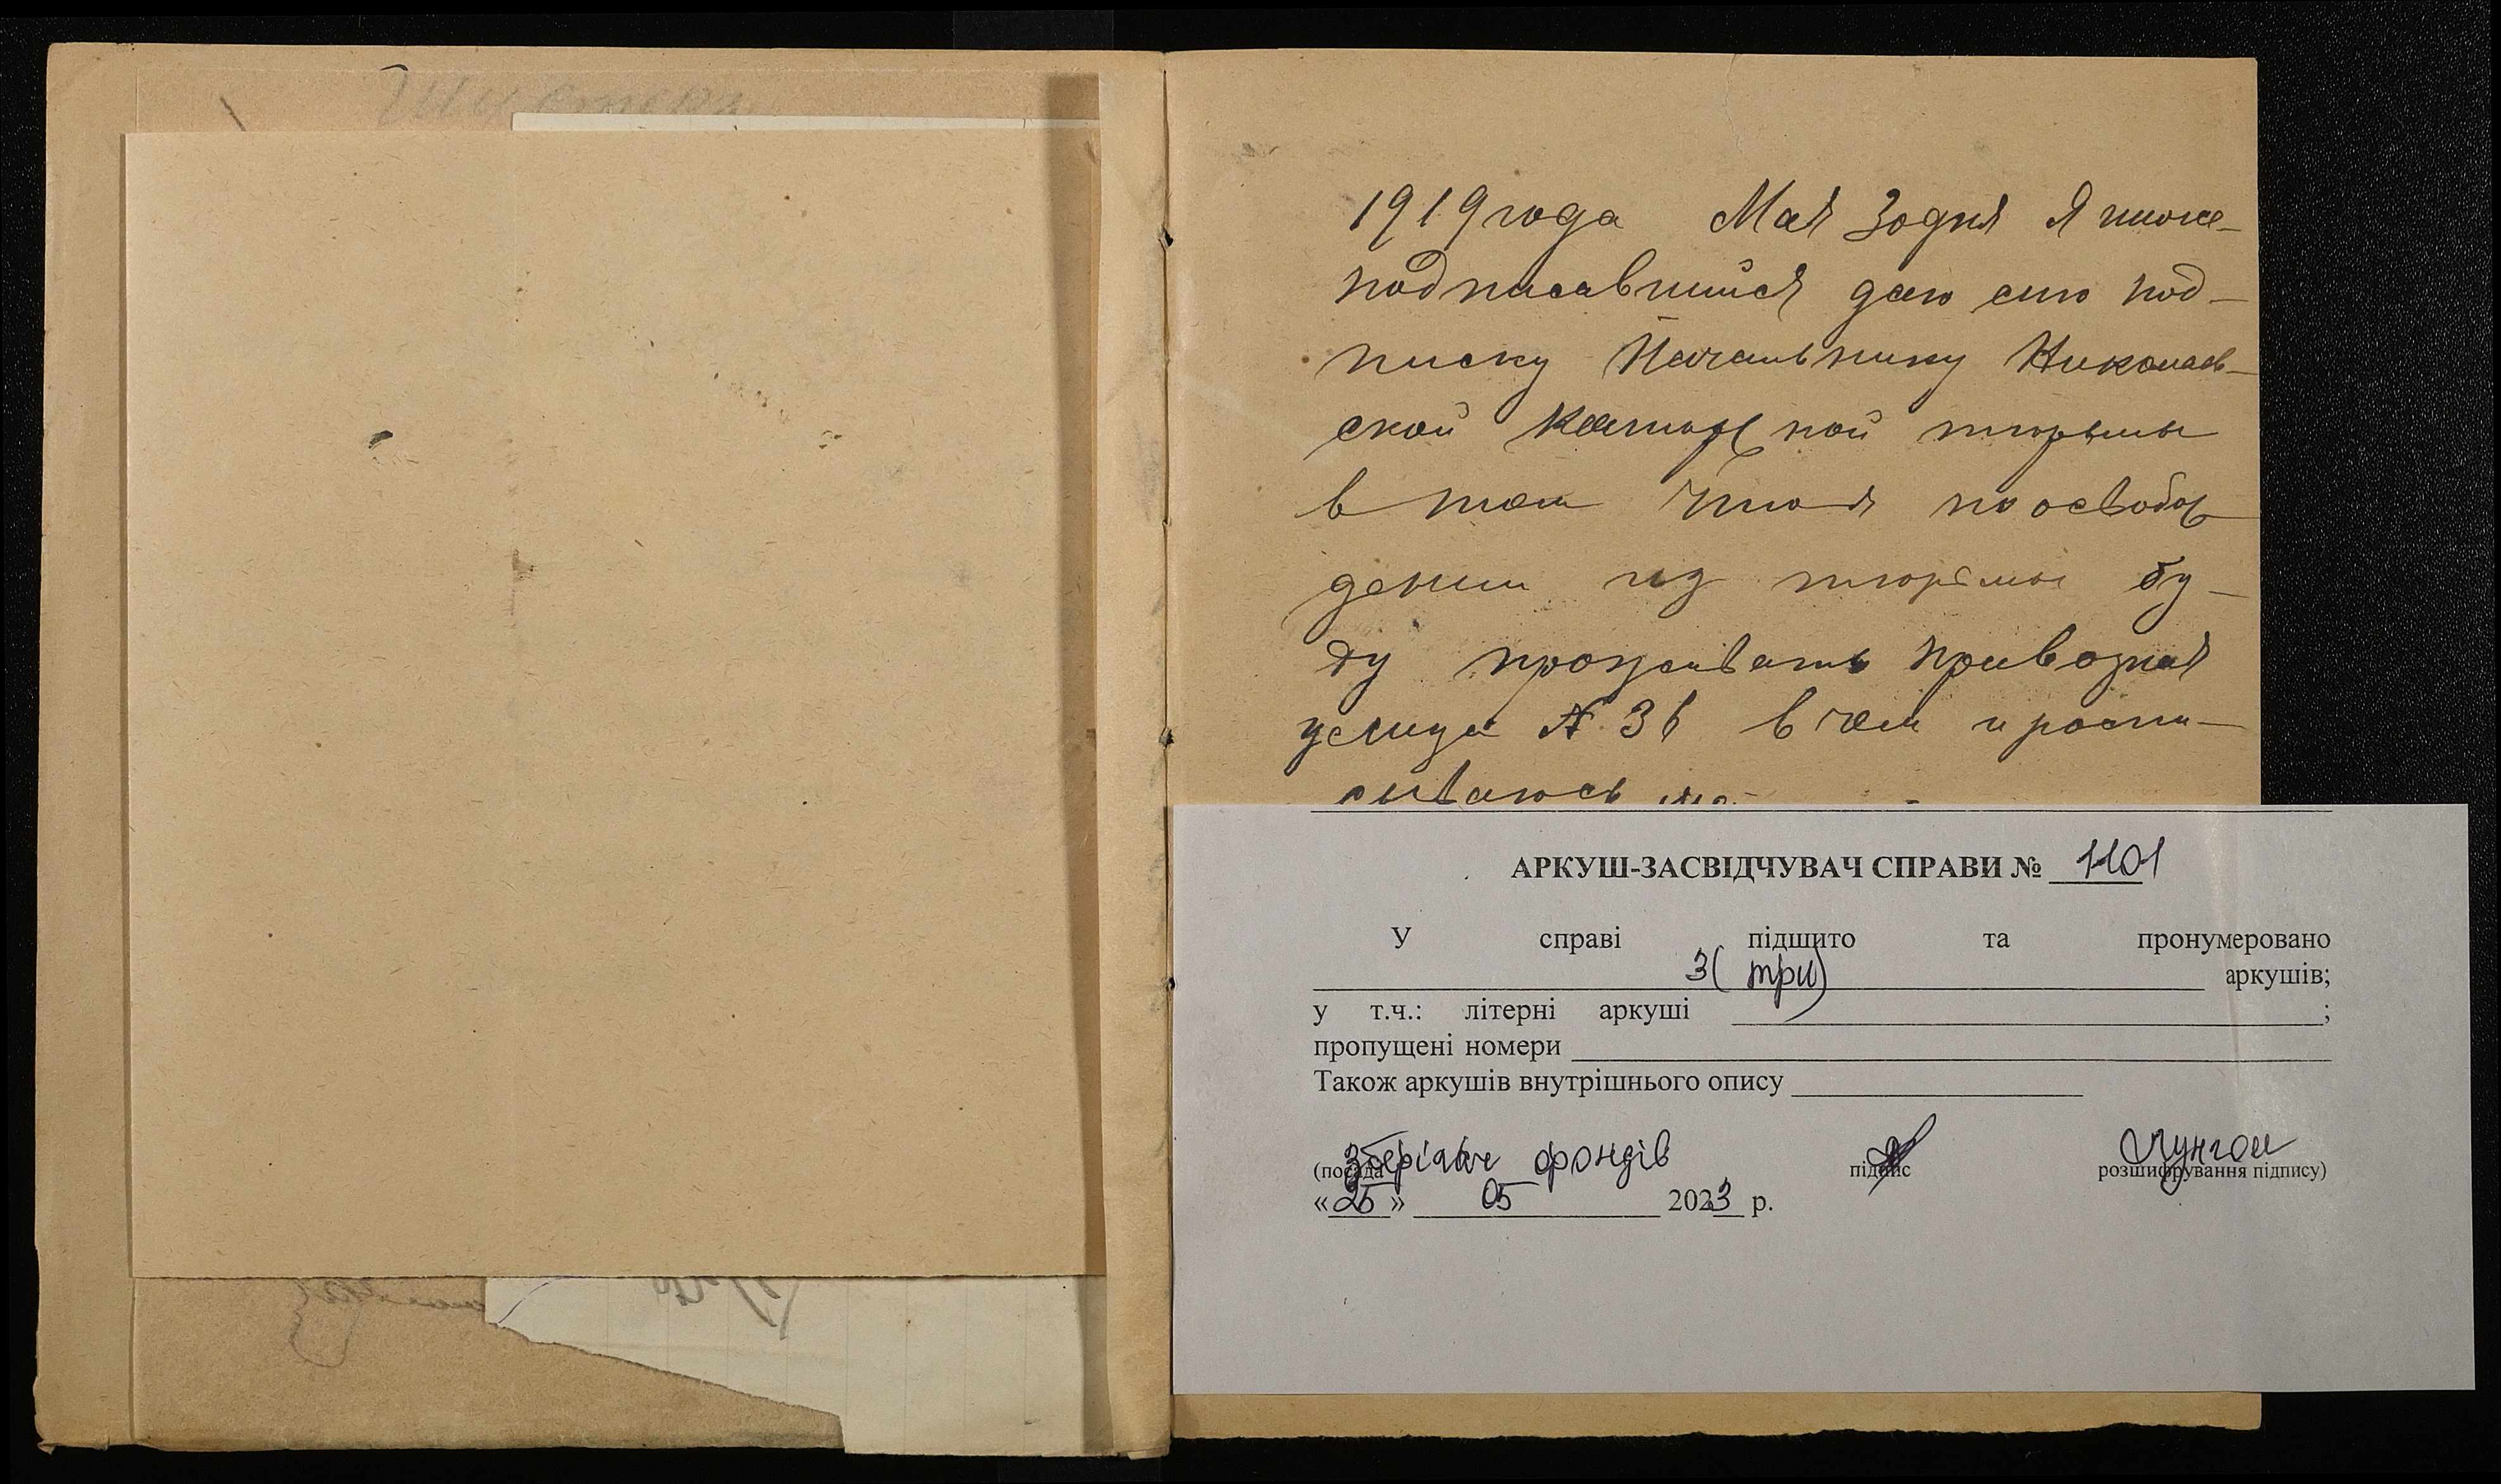 1919 года Мая 30 дня Я ниже-
подписавшийся даю сию под-
писку Начальнику Николаев-
ской Каторжной тюрьмы
в том что я по освобож
дении из тюрьмы бу-
ду проживать Привозная
улица № 36 в чем и распи-
сываюсь
АРКУШ-ЗАСВІДЧУВАЧ СПРАВИ № 1101
У справі підшито та пронумеровано
3 (три) аркушів;
у т.ч.: літерні аркуші ;
пропущені номери
Також аркушів внутрішнього опису
Зберігач фондів
(посада підпис розшифрування підпису)
«25» 05 2023 р.